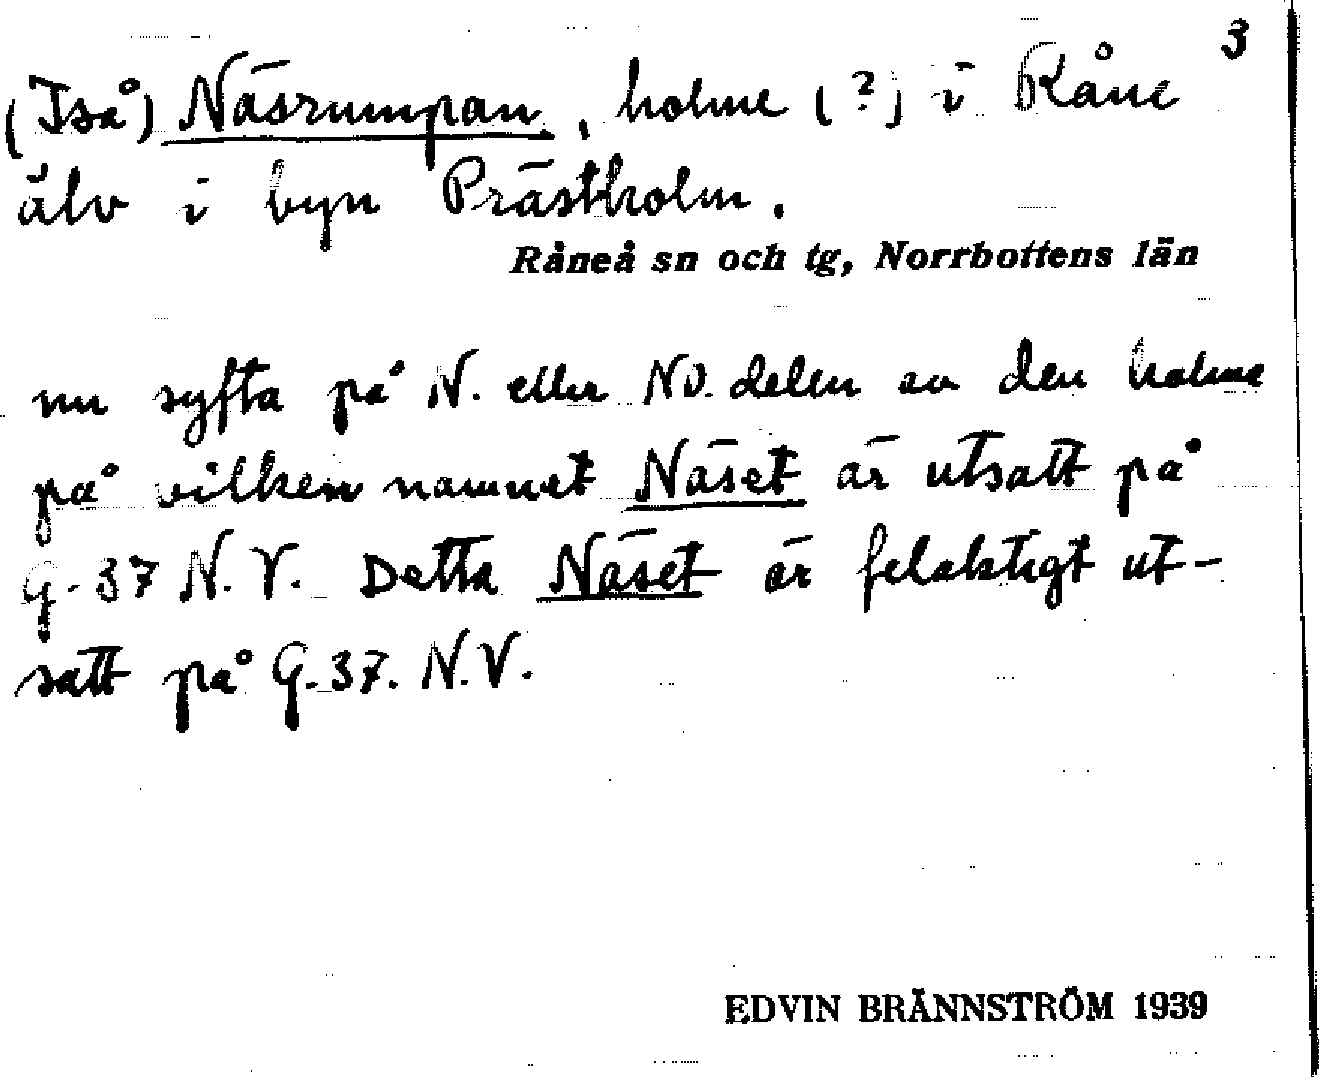 3
(Iså) Näsrumpan, holme (?) i Råne
älv i byn Prästholm.
Råneå sn och tg, Norrbottens län
nu syfta på N. eller NO. delen av den holme
på vilken namnet Näset är utsatt på
G-37 N.V. Detta Näset är felaktigt ut-
satt på G-37. N.V.
EDVIN BRÄNNSTRÖM 1939